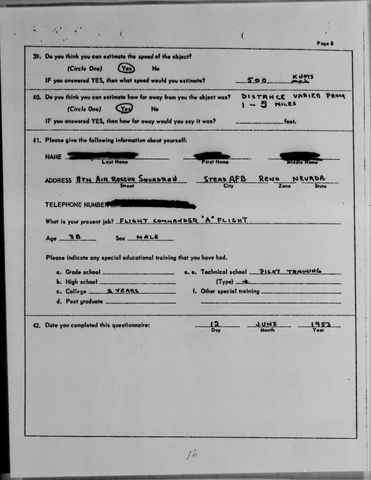 Page 8
39. Do you think you can estimate the speed of the object?
(Circle One) Yes No
IF you answered YES, then what speed would you estimate? 500 KNOTS m.p.h.
40. Do you think you can estimate how far away from you the object was? DISTANCE VARIED FROM
(Circle One) Yes No 1 - 5 MILES
IF you answered YES, then how far away would you say it was? feet.
41. Please give the following information about yourself:
NAME
Last Name First Name Middle Name
ADDRESS 8TH AIR RESCUE SQUADRON STEAD AFB RENO NEVADA
Street City Zone State
TELEPHONE NUMBER
What is your present job? FLIGHT COMMANDER "A" FLIGHT
Age 38 Sex MALE
Please indicate any special educational training that you have had.
a. Grade school e. Technical school PILOT TRAINING
b. High school (Type)
c. College 2 YEARS f. Other special training
d. Post graduate
42. Date you completed this questionnaire: 12 JUNE 1953
Day Month Year